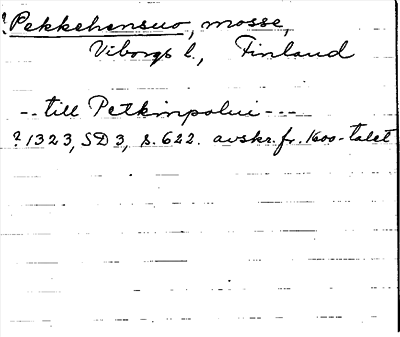 ? Pekkehensuo, mosse,
Viborgs l., Finland
-- till Petkinpolui ---
? 1323, SD 3, s. 622. avskr. fr. 1600-talet